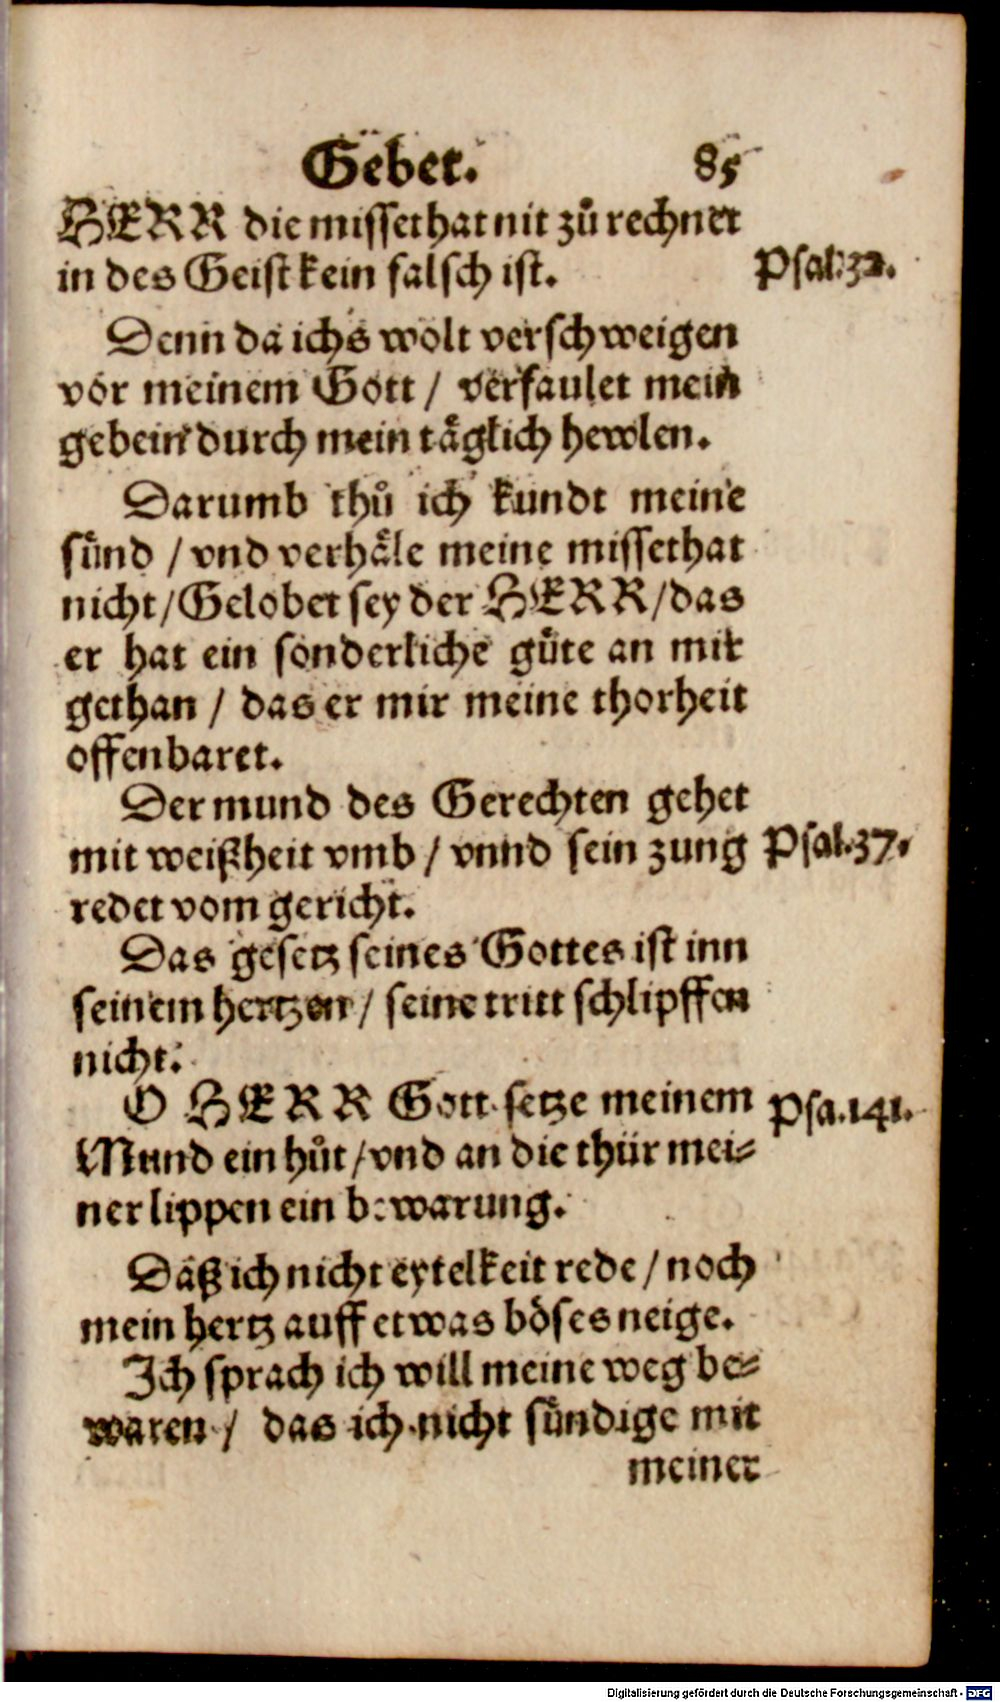 Gebet. 85
HERR die missethat nit zů rechnet
in des Geist kein falsch ist. Psal.32.
Denn da ichs wolt verschweigen
vor meinem Gott / verfaulet mein
gebein durch mein täglich hewlen.
Darumb thů ich kundt meine
sünd / vnd verhäle meine missethat
nicht / Gelobet sey der HERR / das
er hat ein sonderliche güte an mir
gethan / das er mir meine thorheit
offenbaret.
Der mund des Gerechten gehet
mit weißheit vmb / vnnd sein zung Psal.37.
redet vom gericht.
Das gesetz seines Gottes ist inn
seinem hertzen / seine tritt schlipffen
nicht.
O HERR Gott setze meinem Psa.141.
Mund ein hůt / vnd an die thür mei-
ner lippen ein bewarung.
Daß ich nicht eytelkeit rede / noch
mein hertz auff etwas böses neige.
Ich sprach ich will meine weg be-
waren / das ich nicht sündige mit
meiner
Digitalisierung gefördert durch die Deutsche Forschungsgemeinschaft - DFG